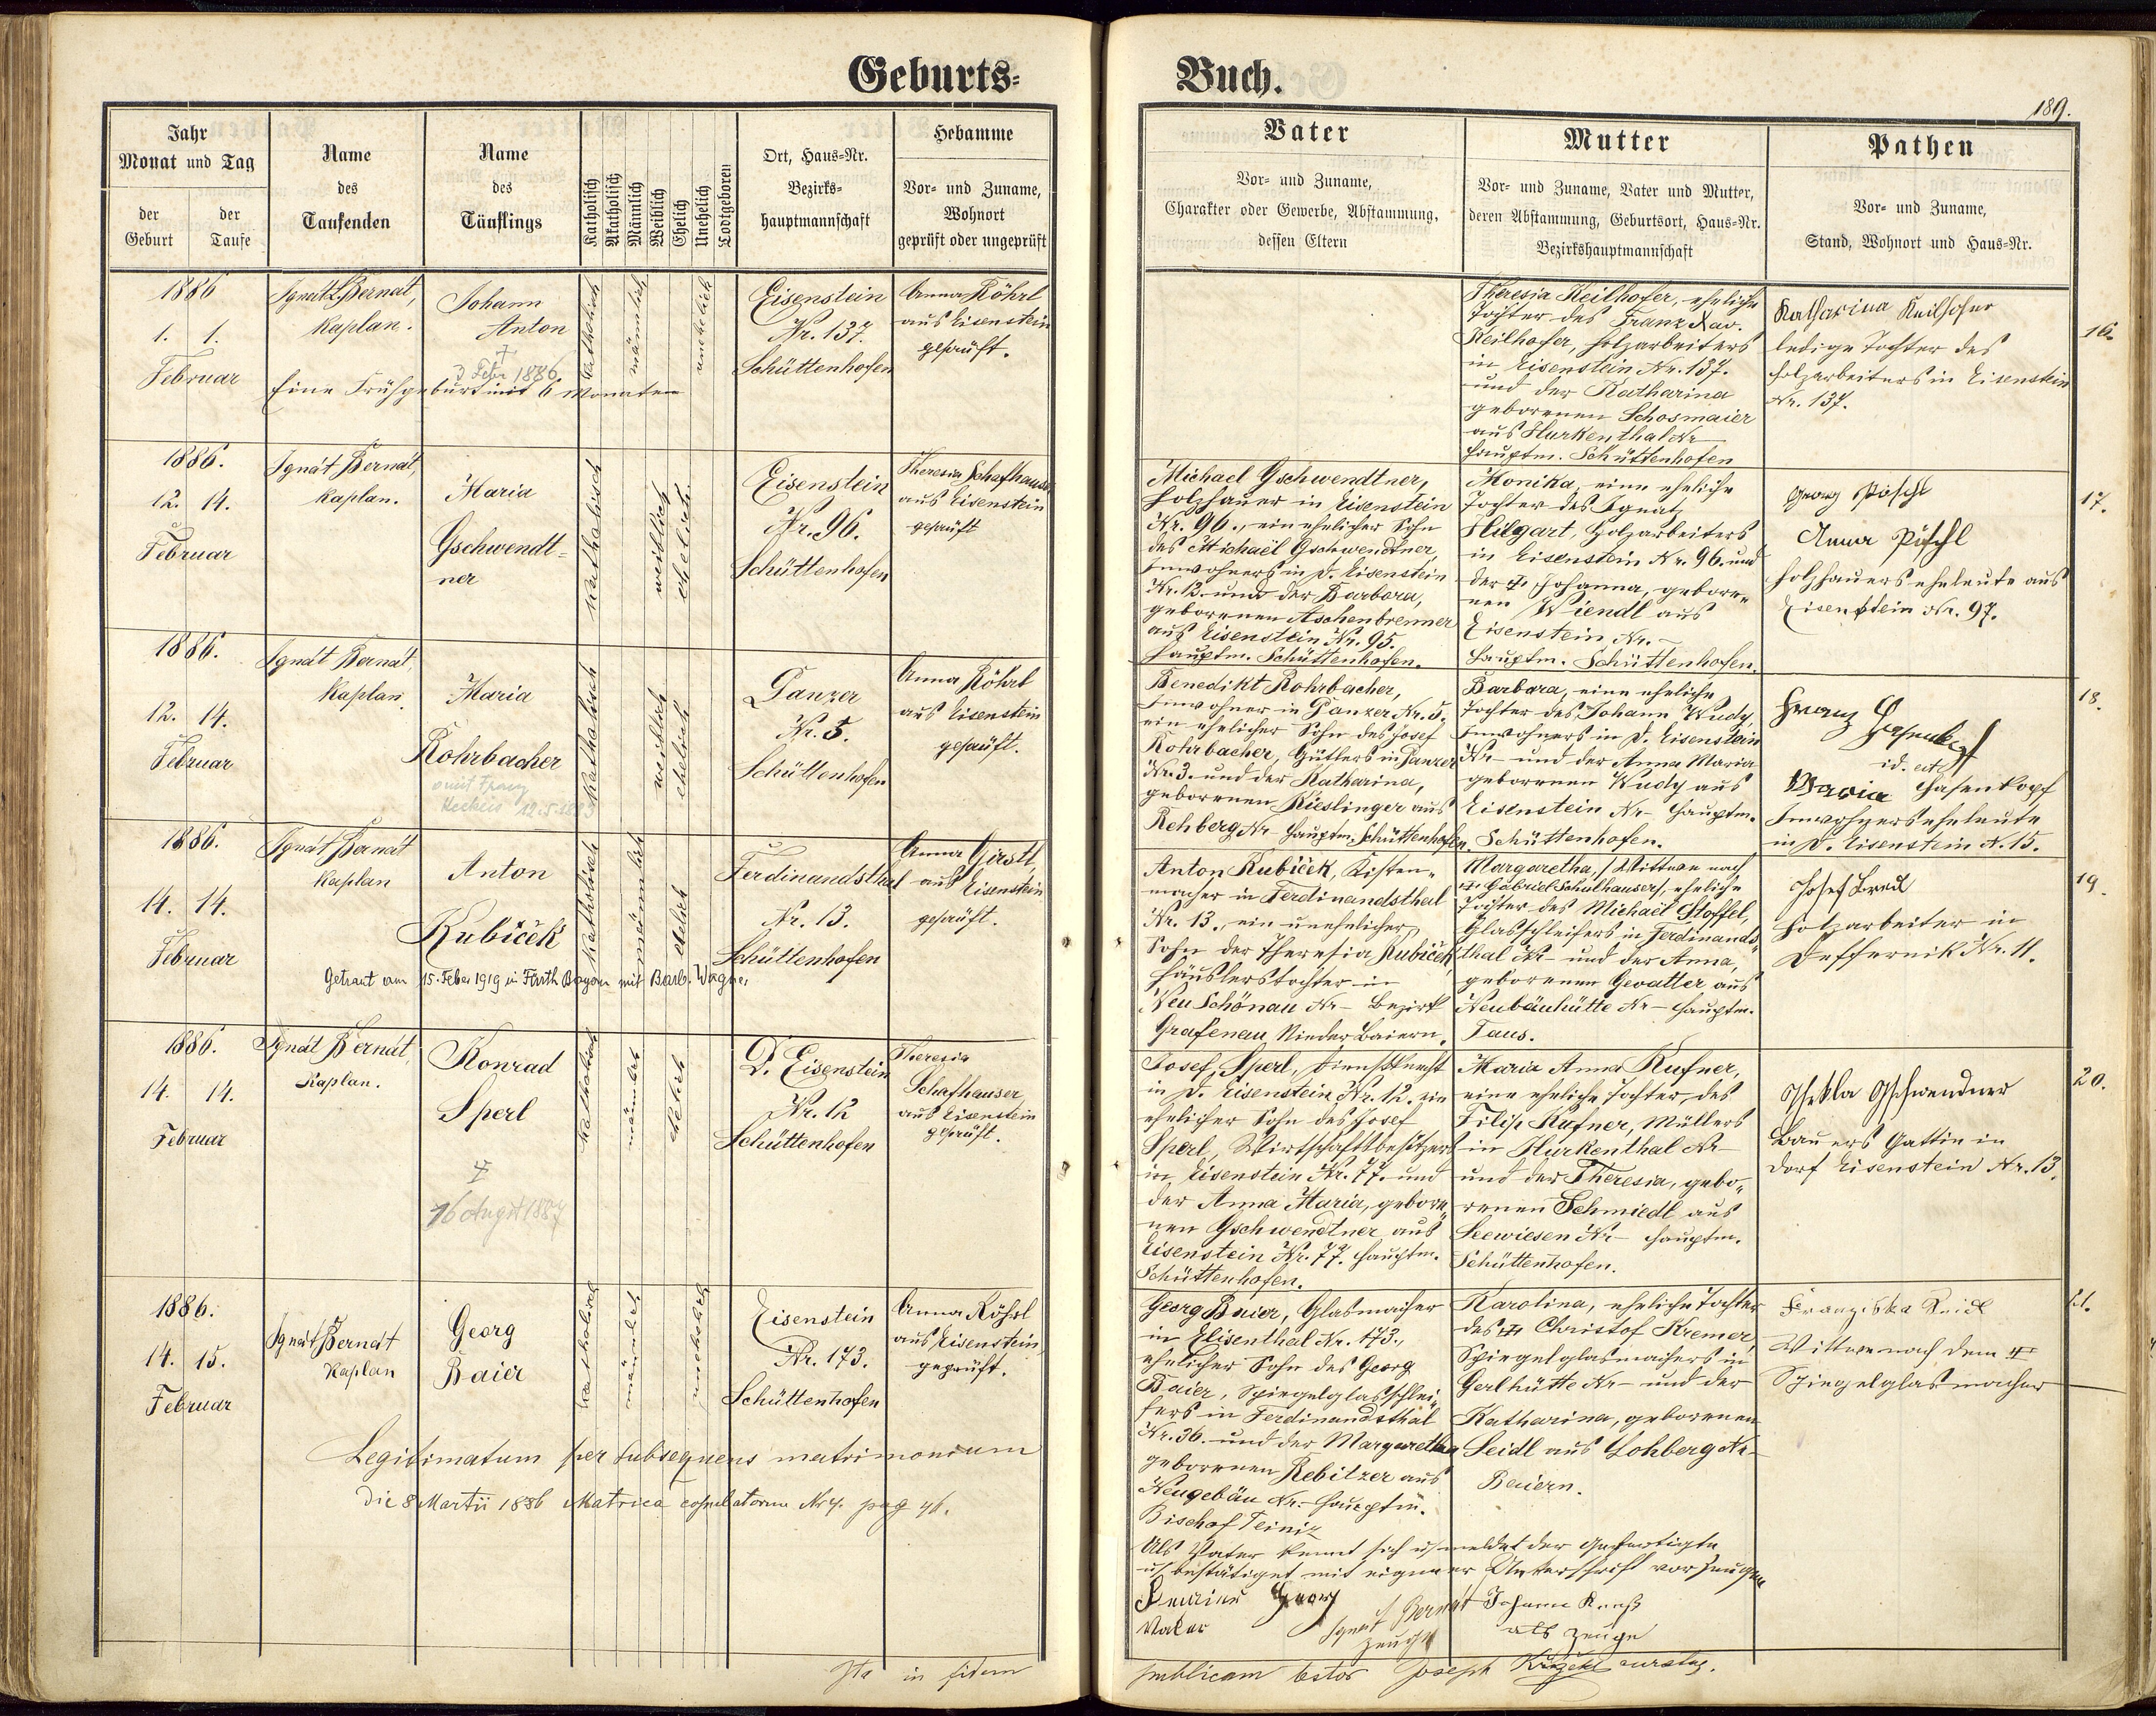 Geburts-
Jahr
Monat und Tag
der Geburt
der Taufe
Name
des
Taufenden
Name
des
Täuflings
Katholisch
Akatholisch
Männlich
Weiblich
Ehelich
Unehelich
Todtgeboren
Ort, Haus-Nr.
Bezirks-
hauptmannschaft
Hebamme
Vor- und Zuname,
Wohnort
geprüft oder ungeprüft
1886
1. 1.
Februar
Ignat Bernat,
Kaplan.
Johann
Anton
†
3 Febr 1886
Eine Frühgeburt mit 6 Monaten
katholisch
männlich
unehelich
Eisenstein
Nr. 137.
Schüttenhofen
Anna Röhrl
aus Eisenstein
geprüft.
1886.
12. 14.
Februar
Ignát Bernát,
Kaplan.
Maria
Gschwendt-
ner
katholisch
weiblich
ehelich.
Eisenstein
Nr. 96.
Schüttenhofen
Theresia Schafhauser
aus Eisenstein
geprüft
1886.
12. 14.
Februar
Ignát Bernát,
Kaplan.
Maria
Rohrbacher
katholisch
weiblich
ehelich
Panzer
Nr. 5.
Schüttenhofen
Anna Röhrl
aus Eisenstein
geprüft.
1886.
14. 14.
Februar
Ignát Bernát
Kaplan
Anton
Kubiček
katholisch
männlich
ehelich
Ferdinandsthal
Nr. 13.
Schüttenhofen
Anna Girstl
aus Eisenstein
geprüft.
Getraut am 15. Feber 1919 in Fürth Bayern mit Barb. Wagner,
1886.
14. 14.
Februar
Ignát Bernát,
Kaplan.
Konrad
Sperl
†
16 August 1887
katholisch
männlich
ehelich
D. Eisenstein
Nr. 12
Schüttenhofen
Theresia
Schafhauser
aus Eisenstein
geprüft.
1886.
14. 15.
Februar
Ignát Bernát
Kaplan
Georg
Baier
katholisch
männlich
unehelich
Eisenstein
Nr. 173.
Schüttenhofen
Anna Röhrl
aus Eisenstein,
geprüft.
Legitimatum per subsequens matrimonium
die 8 Martii 1886 Matrica copulatorum Nr. 4. pag 46.
Ita in fidem
Buch.
189.
Vater
Vor- und Zuname,
Charakter oder Gewerbe, Abstammung,
dessen Eltern
Mutter
Vor- und Zuname, Vater und Mutter,
deren Abstammung, Geburtsort, Haus-Nr.
Bezirkshauptmannschaft
Pathen
Vor- und Zuname,
Stand, Wohnort und Haus-Nr.
Theresia Keilhofer, eheliche
Tochter des Franz Xav.
Keilhofer, Holzarbeiters
in Eisenstein Nr. 137.
und der Katharina
geborenen Schosmaier
aus Hurkenthal Nr –
Hauptm. Schüttenhofen
Katharina Keilhofer
ledige Tochter des
Holzarbeiters in Eisenstein
Nr. 137.
16.
Michael Gschwendtner,
Holzhauer in Eisenstein
Nr. 96., ein ehelicher Sohn
des Michaël Gschwendtner,
Inwohners in D. Eisenstein
Nr. 12. und der Barbara,
geborenen Aschenbrenner
aus Eisenstein Nr. 95.
Hauptm. Schüttenhofen.
Monika, eine eheliche
Tochter des Ignatz
Hilgart, Holzarbeiters
in Eisenstein Nr. 96. und
der † Johanna, gebore-
nen Wiendl aus
Eisenstein Nr. –
Hauptm. Schüttenhofen.
Georg Pöschl
Anna Pöschl
Holzhauers eheleute aus
Eisenstein Nr. 97.
17.
Benedikt Rohrbacher,
Inwohner in Panzer Nr. 5.
ein ehelicher Sohn des Josef
Rohrbacher, Gütlers in Panzer
Nr. 3. und der Katharina,
geborenen Kieslinger aus
Rehberg Nr – Hauptm. Schüttenhofen.
Barbara, eine eheliche
Tochter des Johann Wudy,
Inwohners in D. Eisenstein
Nr – und der Anna Maria
geborenen Wudy aus
Eisenstein Nr – Hauptm.
Schüttenhofen.
Franz Hasenkopf
id. est
Maria Hasenkopf
Inwohners eheleute
in D. Eisenstein N. 15.
18.
Anton Kubiček, Kisten-
macher in Ferdinandsthal
Nr. 13., ein unehelicher
Sohn der Theresia Kubiček,
Häuslerstochter in
Neu Schönau Nr – Bezirk
Grafenau Nieder Baiern.
Margaretha, / Wittwe nach
† Gabriel Schulhauser /, eheliche
Tochter des Michaël Stoffel,
Glasschleifers in Ferdinands-
thal Nr – und der Anna,
geborenen Gevatter aus
Neubäuhütte Nr – Hauptm.
Taus.
Josef
Holzarbeiter in
Deffernik Nr. 11.
19.
Josef Sperl, Dienstknecht
in D. Eisenstein Nr. 12. ein
ehelicher Sohn des Josef
Sperl, Wirtschaftsbesitzers
in Eisenstein Nr. 77. und
der Anna Maria, gebore-
nen Gschwendtner aus
Eisenstein Nr. 77. Hauptm.
Schüttenhofen.
Maria Anna Kufner,
eine eheliche Tochter des
Filip Kufner, Müllers
in Hurkenthal Nr –
und der Theresia, gebo-
renen Schmiedl aus
Seewiesen Nr – Hauptm.
Schüttenhofen.
Thekla Gschwendner
Bauers Gattin in
Dorf Eisenstein Nr. 13.
20.
Georg Baier, Glasmacher
in Elisenthal Nr. 173.,
ehelicher Sohn des Georg
Baier, Spiegelglasschlei-
fers in Ferdinandsthal
Nr. 36. und der Margaretha
geborenen Rebitzer aus
Neugebäu Nr. – Hauptm.
Bischof Teiniz
Karolina, eheliche Tochter
des † Christof Kremer,
Spiegelglasmachers in
Gerlhütte Nr – und der
Katharina, geborenen
Seidl aus Lohberg Nr –
Baiern.
Franziska
Wittwe nach dem †
Spiegelglasmacher
21.
Als Vater kennt sich u meldet der Gefertigte
u bestätiget mit eigener Unterschrift vor Zeugen
Georg
Vater
Ignat Bernát
Zeuge
Johann
als Zeuge
publicam testor Joseph